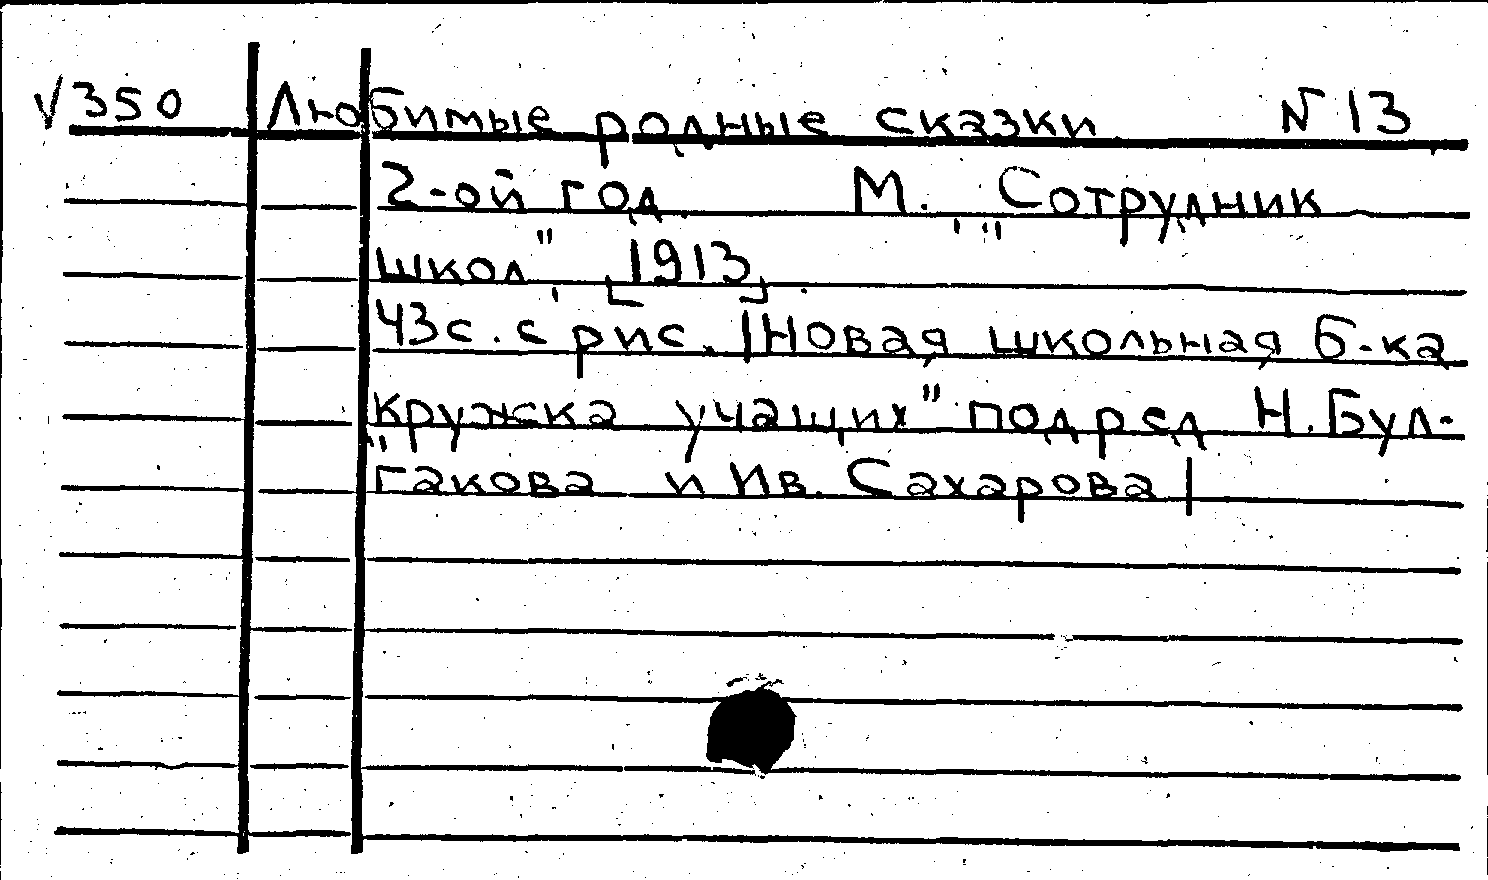 √350 Любимые родные сказки N 13
2-ой год. М., "Сотрудник
школ", [1913].
43с. с рис. |Новая школьная б-ка
"кружка учащих" под ред Н. Бул-
гакова и Ив. Сахарова|